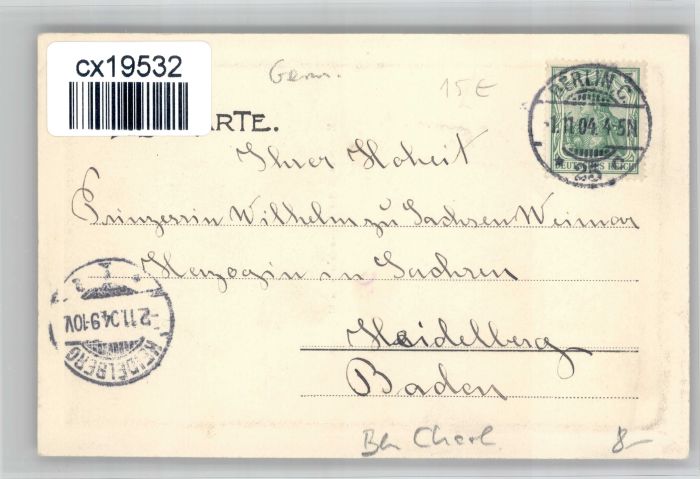 cx19532
Germ.
15 €
ARTE.
BERLIN C.
1.11.04. 4-5N
* 25 c
DEUTSCHES REICH
Ihrer Hoheit
Prinzessin Wilhelm zu Sachsen Weimar
Herzogin in Sachsen
-2.11.04 9-10V
HEIDELBERG
Heidelberg
Baden
Bln Charl.
8-